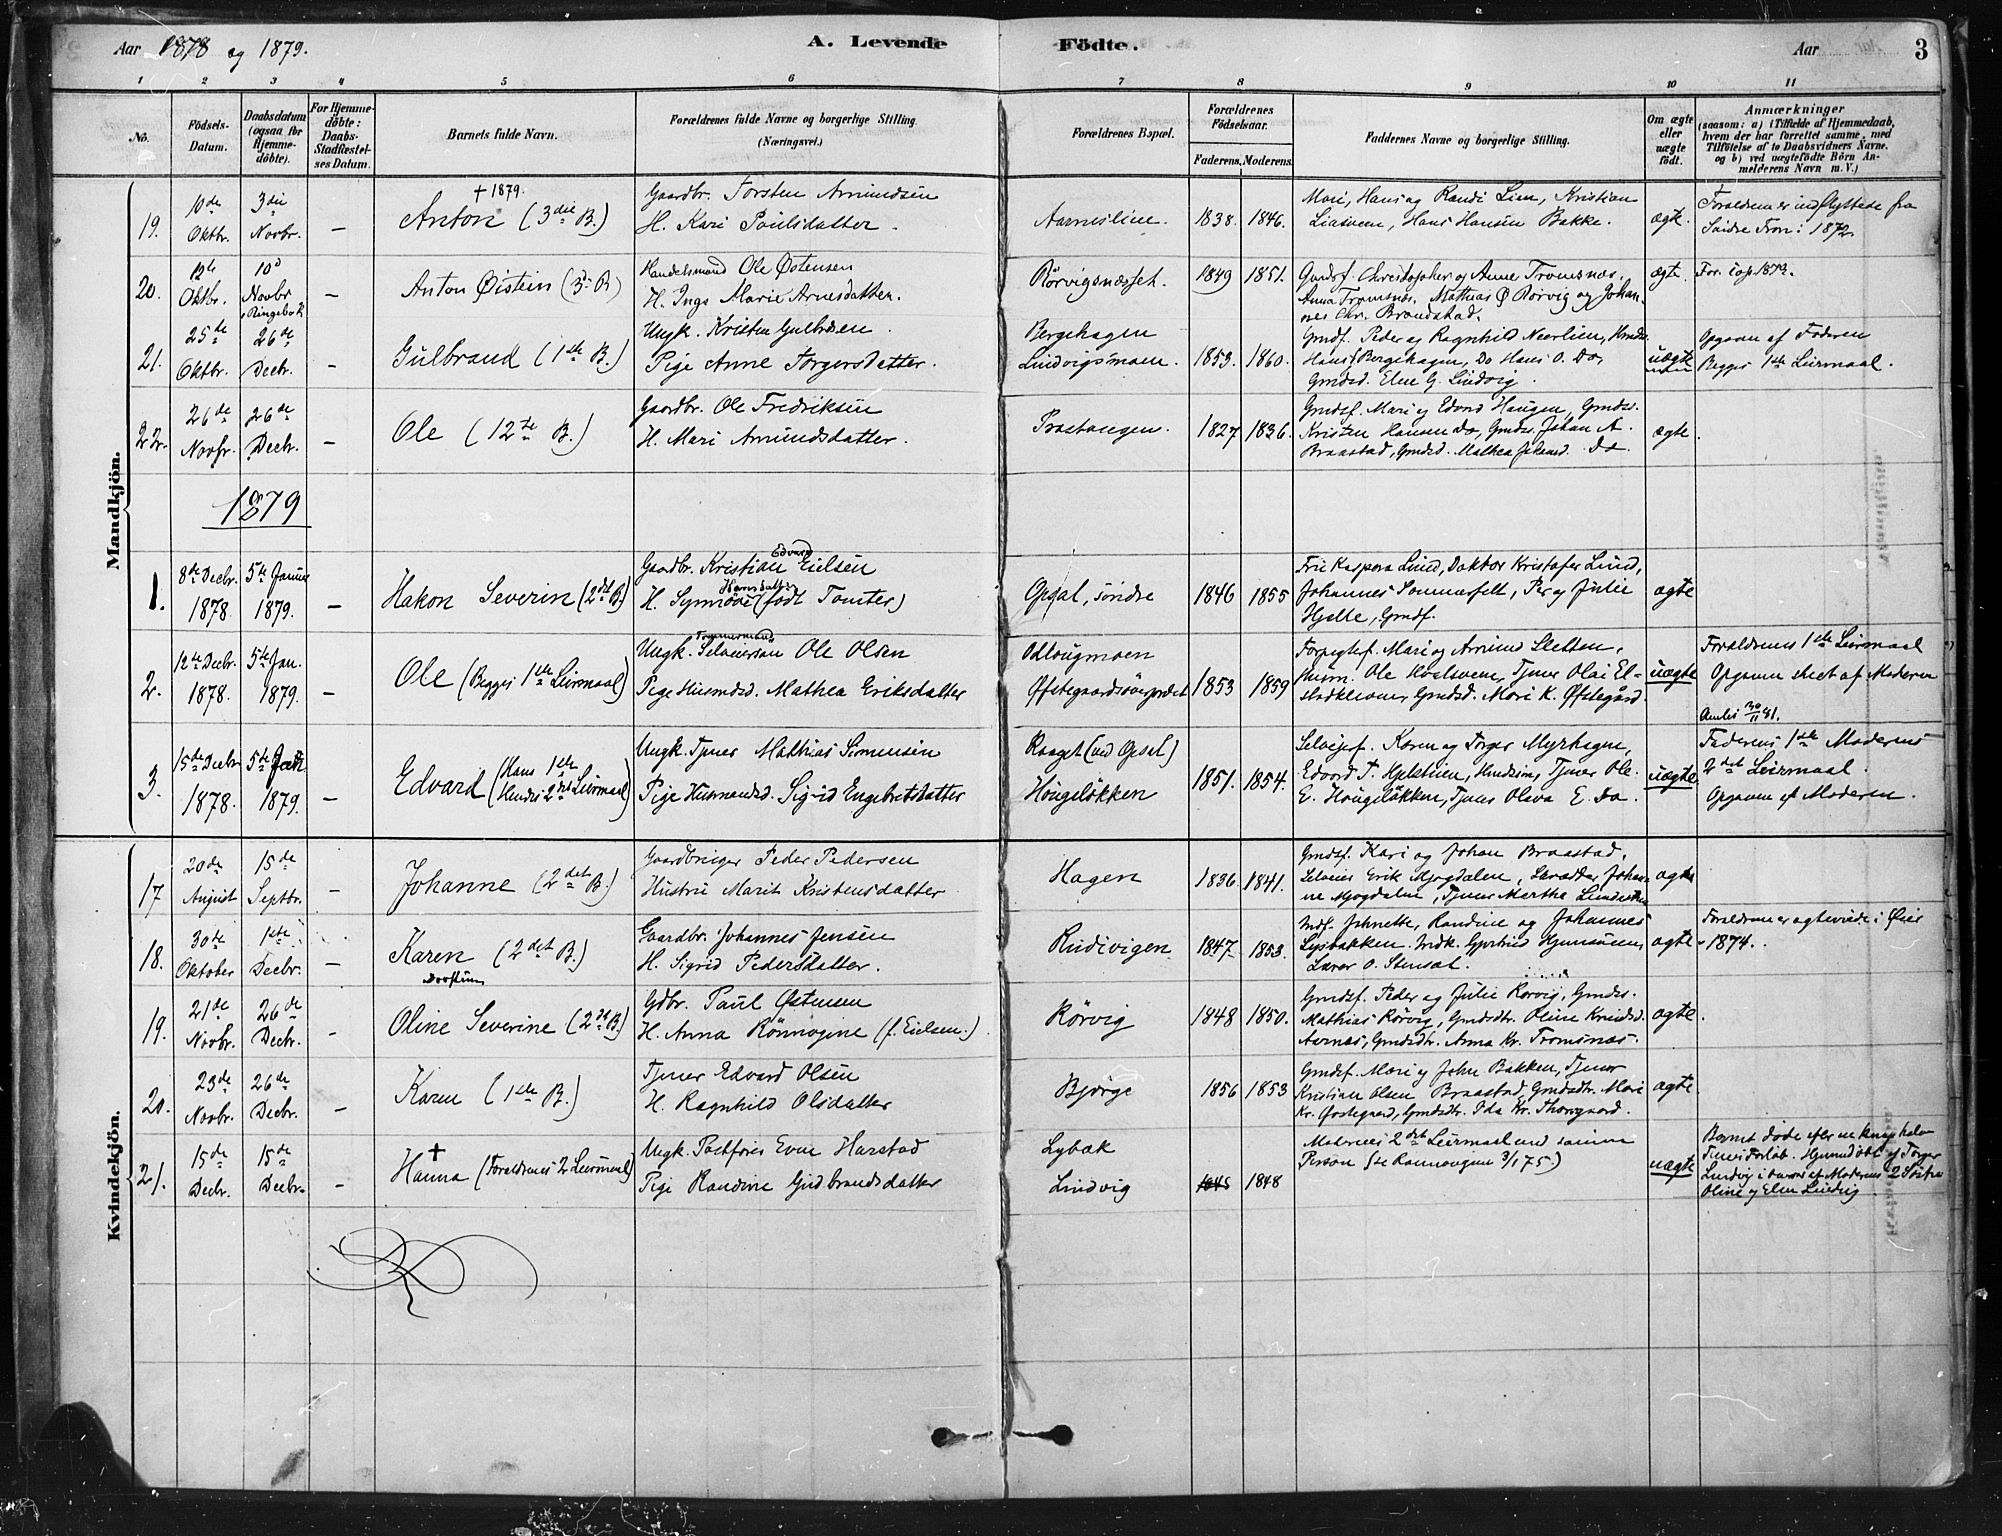 Aar 1878 og 1879.
A. Levende Födte.
Aar
3
1 2 3 4 5 6 7 8 9 10 11
No.
Födsels-Datum.
Daabsdatum (ogsaa for Hjemme-döbte).
For Hjemme-döbte: Daabs-Stadfæstel-ses Datum.
Barnets fulde Navn.
Forældrenes fulde Navne og borgerlige Stilling. (Næringsvei.)
Forældrenes Bopæl.
Forældrenes Födselsaar.
Faderens. Moderens.
Faddernes Navne og borgerlige Stilling.
Om ægte eller uægte födt.
Anmærkninger
(saasom: a) i Tilfælde af Hjemmedaab, hvem der har forrettet samme, med Tilföielse af to Daabsvidners Navne, og b) ved uægtefödte Börn An-melderens Navn m. V.)
Mandkjön.
19. 10de Oktbr. 3die Novbr. –
† 1879.
Anton (3die B.)
Gaardbr. Torsten Amundsen
H. Kari Poulsdatter.
Aarneslien. 1838. 1846.
Mari, Hans og Randi Lien, Kristian
Liasveen, Hans Hansen Bakke.
ægte.
Forældrene indflyttede fra
Söndre Fron i 1872.
20. 12te Oktbr. 10d Novbr Ringebok –
Anton Øistein (3d B)
Handelsmand Ole Østensen
H. Inga Marie Arnesdatter.
Rörvigsnæsset. 1849 1851.
Gaardsf. Christopher og Anne Tromsnæs,
Anna Tromsnæs, Mathias Ø Rörvig og Johan-
nes Chr. Brandstad.
ægte
For. cop. 1873.
21. 25de Oktbr. 26de Decbr. –
Gulbrand (1ste B.)
Ungk. Kristen Gulbrdsen.
Pige Anne Torgersdatter.
Bergehagen
Lindvigsmoen. 1853. 1860.
Grndf. Peder og Ragnhild Neerlien,
Hans Bergehagen, Do Hans O. Do,
Grndsd. Eline G. Lindvig.
uægte
Opgaven af Faderen
Begges 1ste Leirmaal.
22. 26de Novbr. 26de Decbr. –
Ole (12te B.)
Gaardbr. Ole Fredriksen
H. Mari Amundsdatter.
Prastangen. 1827 1836.
Grndsf. Mari og Edvard Haugen, Grndss.
Kristen Hansen Do, Grndss. Johan A.
Braastad, Grndsd. Mathea Johansd. Do.
ægte.
1879
1. 8de Decbr. 1878 5te Januar 1879. –
Hakon Severin (2det B.)
Edvard
Gaardbr. Kristian Eielsen
Hansdatter
H. Synnöve (födt Tomter)
Opsal, söndre 1846 1855
Fru Kaspara Lund, Doktor Kristofer Lund,
Johannes Sommerfelt, Per og Julie
Hjelle, Grndf.
ægte
2. 12te Decbr. 1878. 5te Jan. 1879. –
Ole (Begges 1ste Leirmaal)
Tømmermand
Ungk. Selveiersøn Ole Olsen
Pige Husmdsd. Mathea Eriksdatter
Odlougmoen
1853 1859
Forpagtsf. Mari og Amund Sletten,
Ole Hoelsveen, Tjener Olai El-
stadkleiven, Grndsd. Mari K. Øfstegård.
uægte
Forældrenes 1ste Leirmaal
Opgaven skeet af Moderen
Amles 30/11 81.
3. 15de Decbr 1878. 5te Jan 1879. –
Edvard (Hans 1ste Hendes 2det Leirmaal)
Ungk. Tjener Mathias Simensen
Pige Husmandsd. Sigrid Engebretsdatter
Raaget (ved Opsal)
Høugeløkken 1851. 1854.
Selveierf. Karen og Torger Myrhagen,
Edvard T. Tjener Ole
E. Høugeløkken, Tjener Oleva E. Do.
uægte
Faderens 1ste Moderens
2det Leirmaal.
Opgaven af Moderen.
Kvindekjön.
17 20de August 15de Septbr. –
Johanne (2det B.)
Gaardbruger Peder Pedersen
Hustru Marit Kristensdatter
Hagen 1836. 1841.
Grndsf. Kari og Johan Braastad,
Selveier Erik Mjogdalen, Skrædder Johan-
ne Mjogdalen, Tjener Marthe
ægte
18. 30te Oktober 1ste Decbr. –
Karen (2det B.)
Gaardbr. Johannes Jensen
H. Sigrid Pedersdatter.
Rudivigen 1847 1853.
Indf. Johnette, Randine og Johannes
Lysbakken.
Lærer O. Stensæt.
ægte
Forældrene ægteviede i Øier
1874.
19. 21de Novbr. 26de Decbr. –
Oline Severine (2det B.)
Gdbr. Paul Østensen
H. Anna Rönnogine (f. Eielsen.)
Rörvig 1848 1850.
Grndsf. Peder og Julie Rörvig, Grndss.
Mathias Rörvig, Grndsdtr. Oline Knudsd.
Aarnæs, Grndsdtr. Anna Kr. Tromsnæs.
ægte.
20. 23de Novbr. 26de Decbr. –
Karen (1ste B.)
Tjener Edvard Olsen
H. Ragnhild Olsdatter
Bjørge 1856 1853
Grndsf. Mari og John Bakken, Tjener
Kristian Olsen Braastad, Grndsdtr. Mari
Kr. Øfstegaard, Grndsdtr. Ida Kr. Thorsgaard.
ægte.
21. 15de Decbr. 15de Decbr. –
†
Hanna (Forældrenes 2 Leirmaal)
Ungk. Postfører Even Harstad
Pige Randine Gudbrandsdatter
Lybæk
Lindvig 1845 1848
Moderens 2det Leirmaal med samme
Person (se Rannougine 3/1 75)
uægte
Barnet døde efter en knap halv
Times Forløb. Hjemmedöbt af Torger
Lindvig i Overvær af Moderens 2 Søstre
Oline og Elen Lindvig.